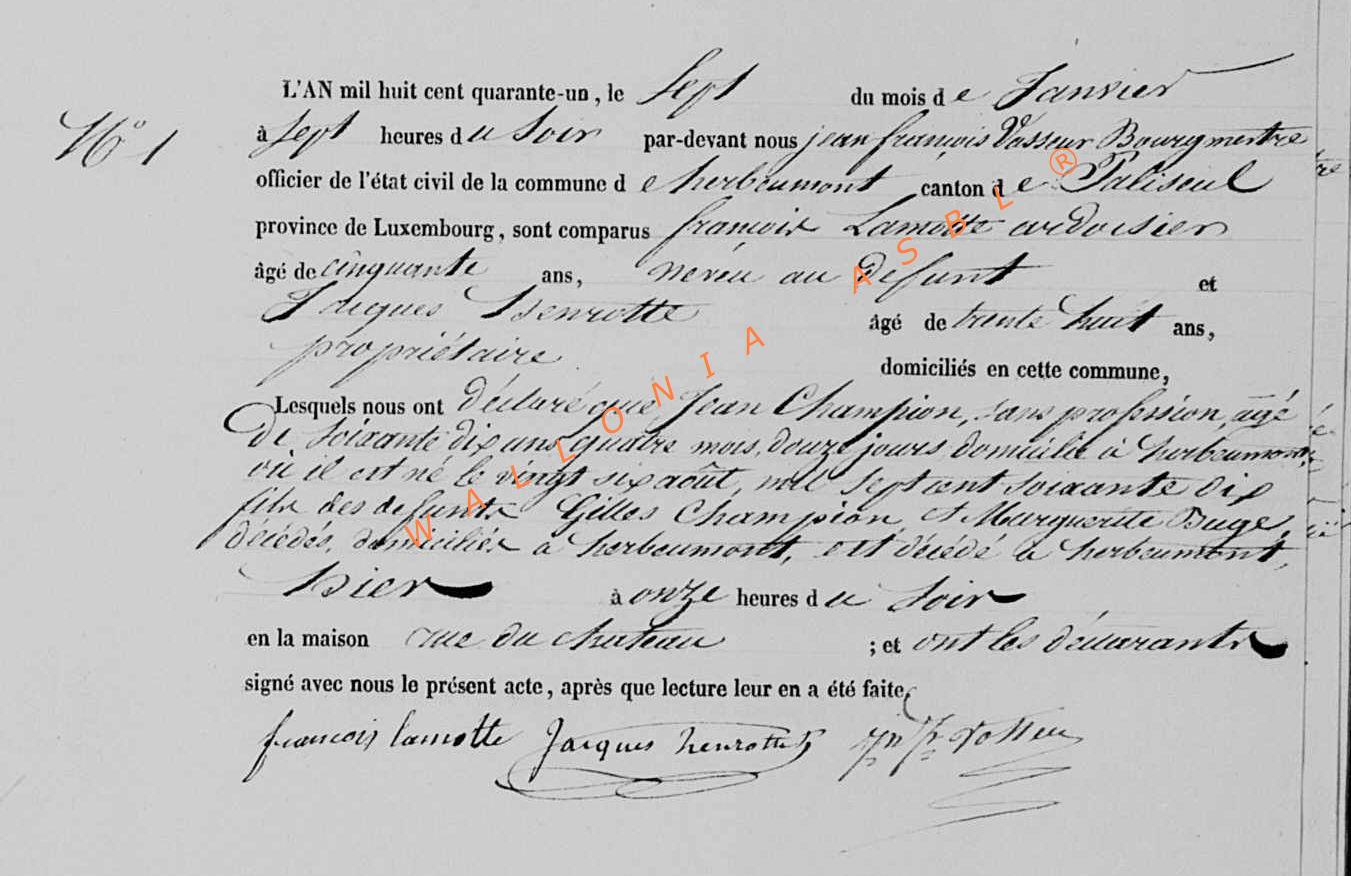 N° 1
L'AN mil huit cent quarante-un, le Sept du mois de Janvier
à Sept heures du Soir par-devant nous jean françois Vasseur Bourgmestre
officier de l'état civil de la commune de herbeumont canton de Paliseul
province de Luxembourg, sont comparus françois Lamotte ardoisier
âgé de cinquante ans, neveu au défunt et
Jacques Henrotte âgé de trente huit ans,
propriétaire domiciliés en cette commune,
Lesquels nous ont déclaré que Jean Champion, sans profession, âgé
de soixante dix ans quatre mois, douze jours domicilié à herbeumont,
où il est né le vingt six août, mil sept cent soixante dix
fils des defunts Gilles Champion, et Marguerite Bugé,
décédés, domiciliés à herbeumont, est décédé à herbeumont,
hier à onze heures du Soir
en la maison rue du chateau ; et ont les déclarants
signé avec nous le présent acte, après que lecture leur en a été faite,
françois lamotte Jacques henrotte jn fs Vasseur
WALLONIA ASBL ®